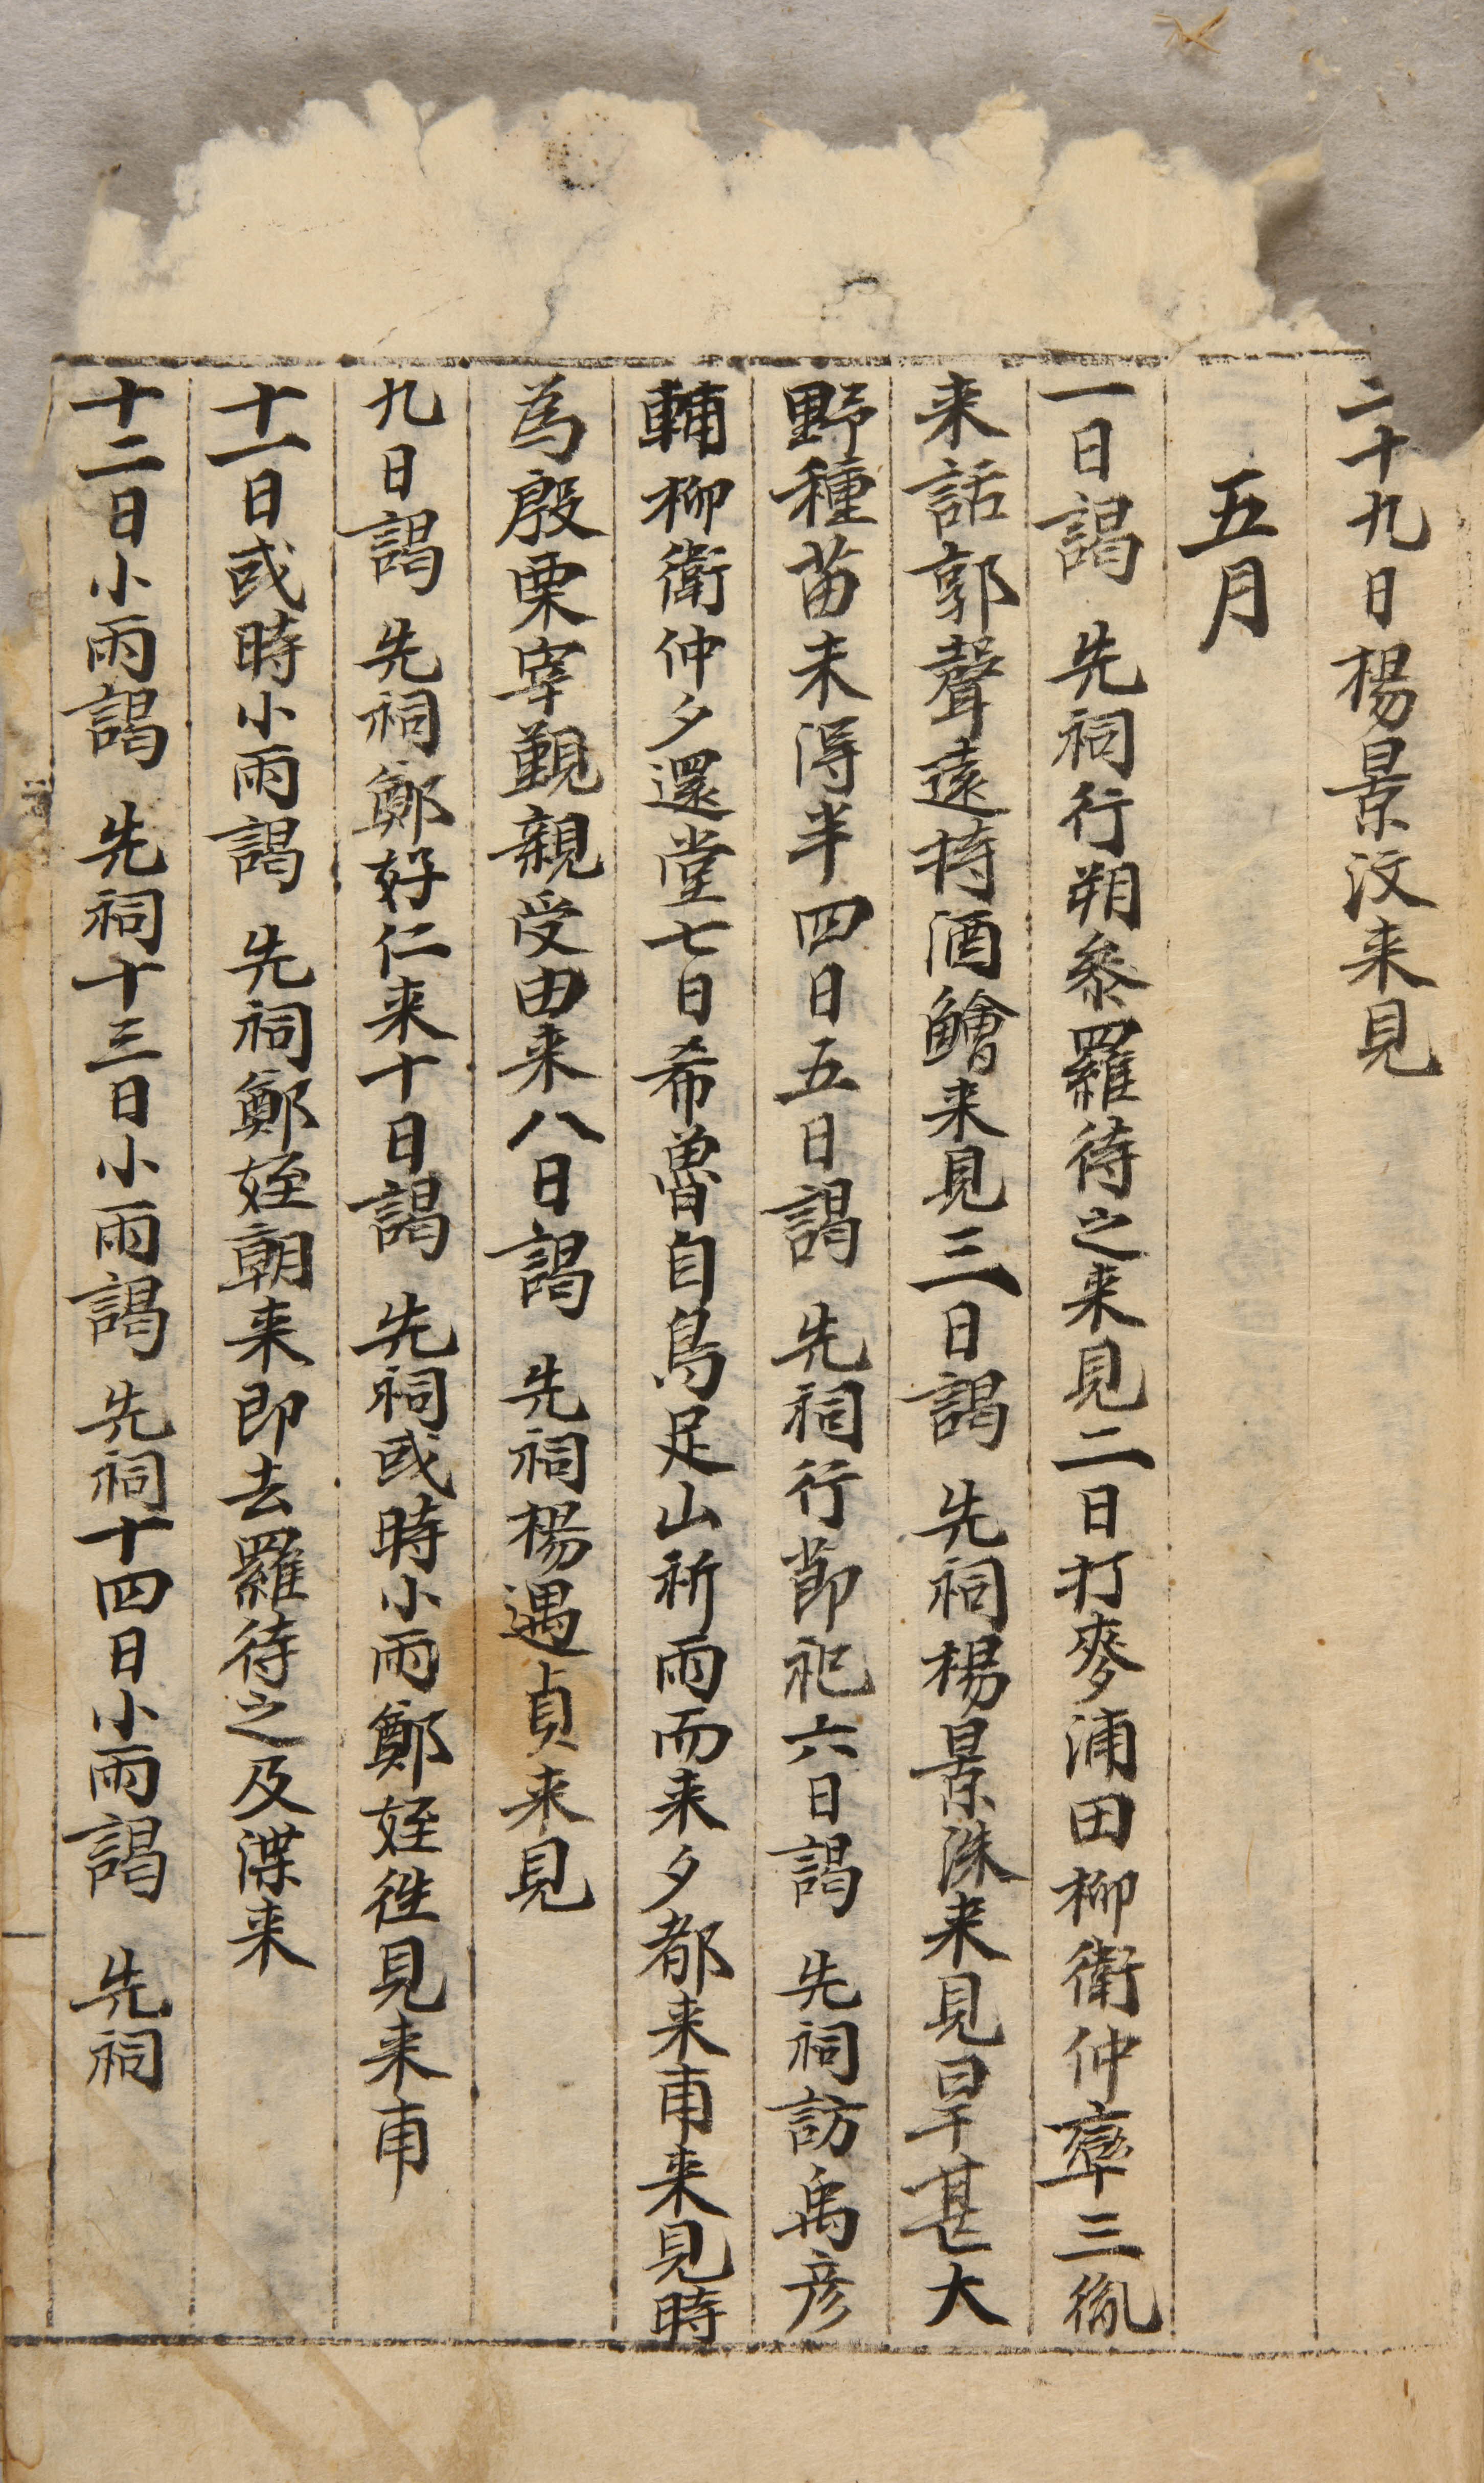 二十九日楊景汶来見
五月
一日謁 先祠行朔叅羅待之来見二日打麥浦田柳衛仲率三胤
来話郭聲遠持酒鱠来見三日謁 先祠楊景洙来見旱甚大
野種苗未得半四日五日謁 先祠行節祀六日謁 先祠訪禹彦
輔柳衛仲夕還堂七日希魯自鳥足山祈雨而来夕都来甫来見時
為殷栗宰覲親受由来八日謁 先祠楊遇貞来見
九日謁 先祠鄭好仁来十日謁 先祠或時小雨鄭姪徃見来甫
十一日或時小雨謁 先祠鄭姪朝来即去羅待之及渫来
十二日小雨謁 先祠十三日小雨謁 先祠十四日小雨謁 先祠